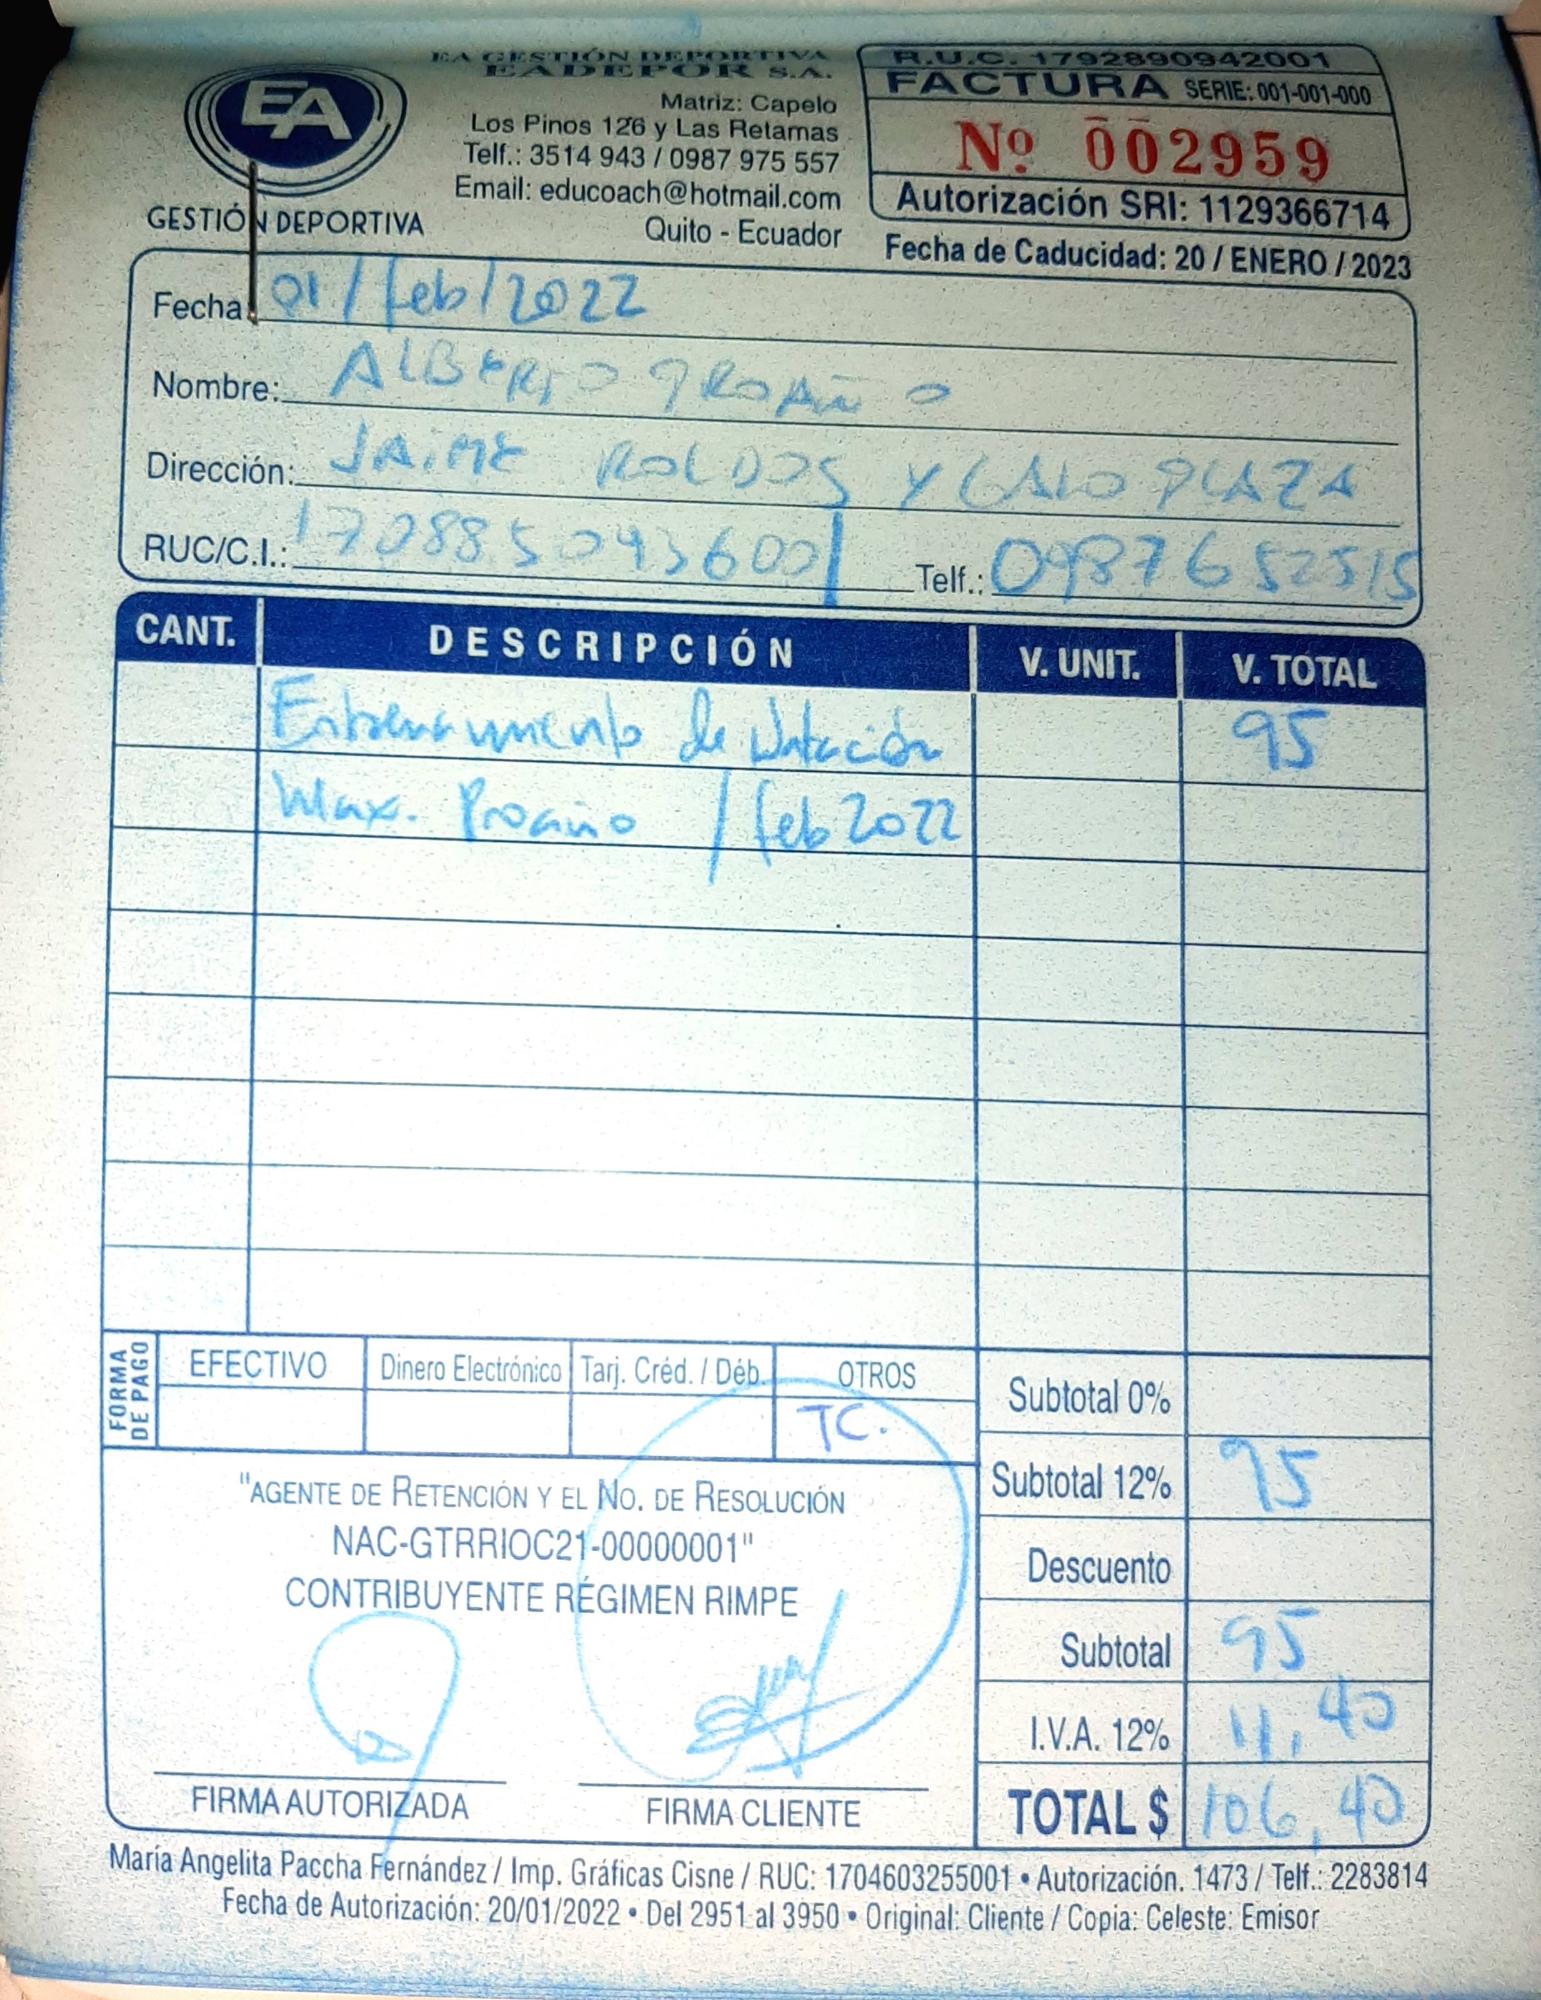 EA
GESTIÓN DEPORTIVA
EA GESTIÓN DEPORTIVA
EADEPOR S.A.
Matriz: Capelo
Los Pinos 126 y Las Retamas
Telf.: 3514 943 / 0987 975 557
Email: educoach@hotmail.com
Quito - Ecuador
R.U.C. 1792890942001
FACTURA SERIE: 001-001-000
Nº 002959
Autorización SRI: 1129366714
Fecha de Caducidad: 20 / ENERO / 2023
Fecha: 01/feb/2022
Nombre: ALBERTO PROAÑO
Dirección: JAIME ROLDOS Y GALO PLAZA
RUC/C.I.: 1708850436001 Telf.: 0987652515
CANT. DESCRIPCIÓN V. UNIT. V. TOTAL
Entrenamiento de Natación 95
Max. Proaño / feb 2022
FORMA DE PAGO
EFECTIVO Dinero Electrónico Tarj. Créd. / Déb. OTROS
TC.
Subtotal 0%
Subtotal 12% 95
Descuento
Subtotal 95
I.V.A. 12% 11,40
TOTAL $ 106,40
"AGENTE DE RETENCIÓN Y EL NO. DE RESOLUCIÓN
NAC-GTRRIOC21-00000001"
CONTRIBUYENTE RÉGIMEN RIMPE
FIRMA AUTORIZADA FIRMA CLIENTE
María Angelita Paccha Fernández / Imp. Gráficas Cisne / RUC: 1704603255001 • Autorización. 1473 / Telf.: 2283814
Fecha de Autorización: 20/01/2022 • Del 2951 al 3950 • Original: Cliente / Copia: Celeste: Emisor